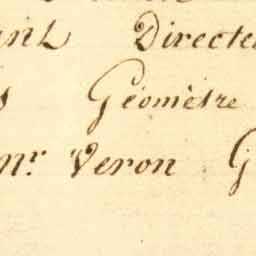 Directe
Géomètre
nr. Veron G